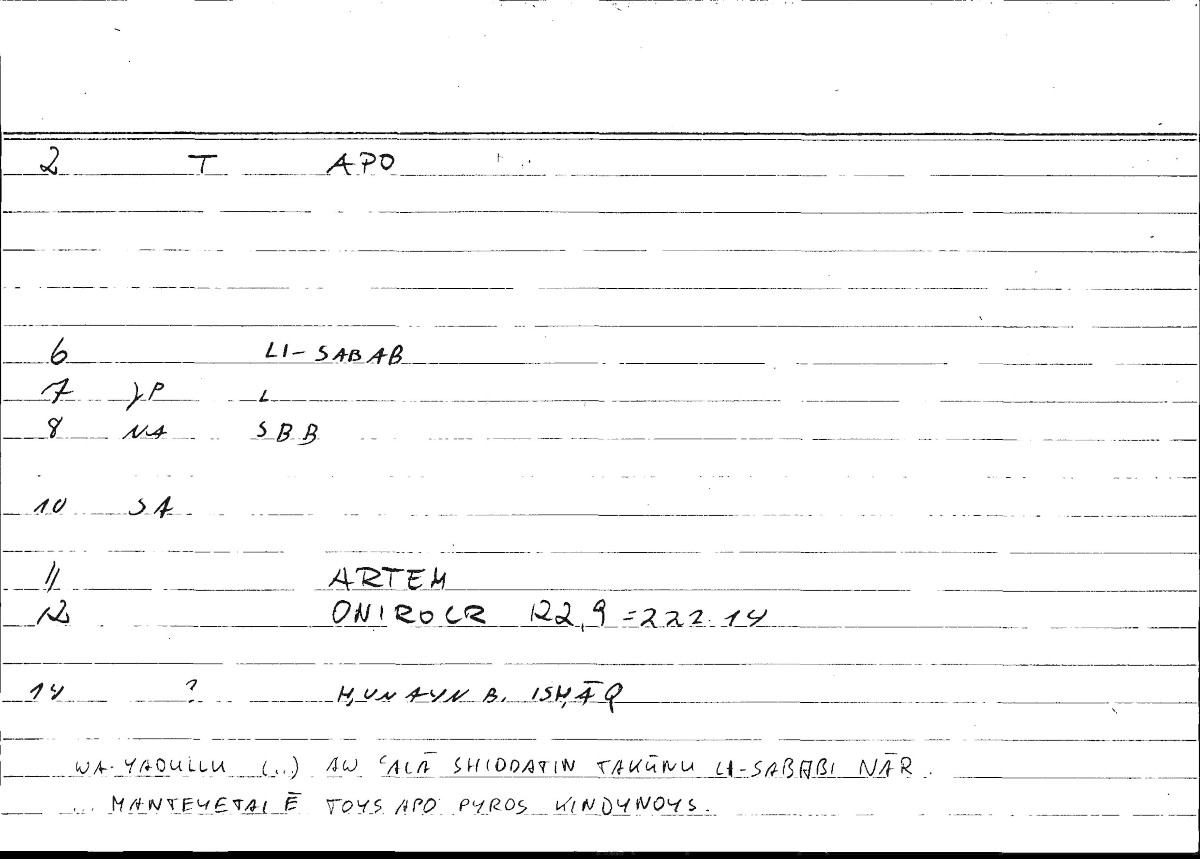 2 T APO
6 LI-SABAB
7 L
8 NA SBB
10 SA
11 ARTEM
12 ONIROCR 122,9 =222.14
14 ? H,UNAYN B. ISH,ĀQ
WA-YADULLU (...) AW ʿALĀ SHIDDATIN TAKŪNU LI-SABABI NĀR.
... MANTEYETAI Ē TOYS APO PYROS KINDYNOYS.